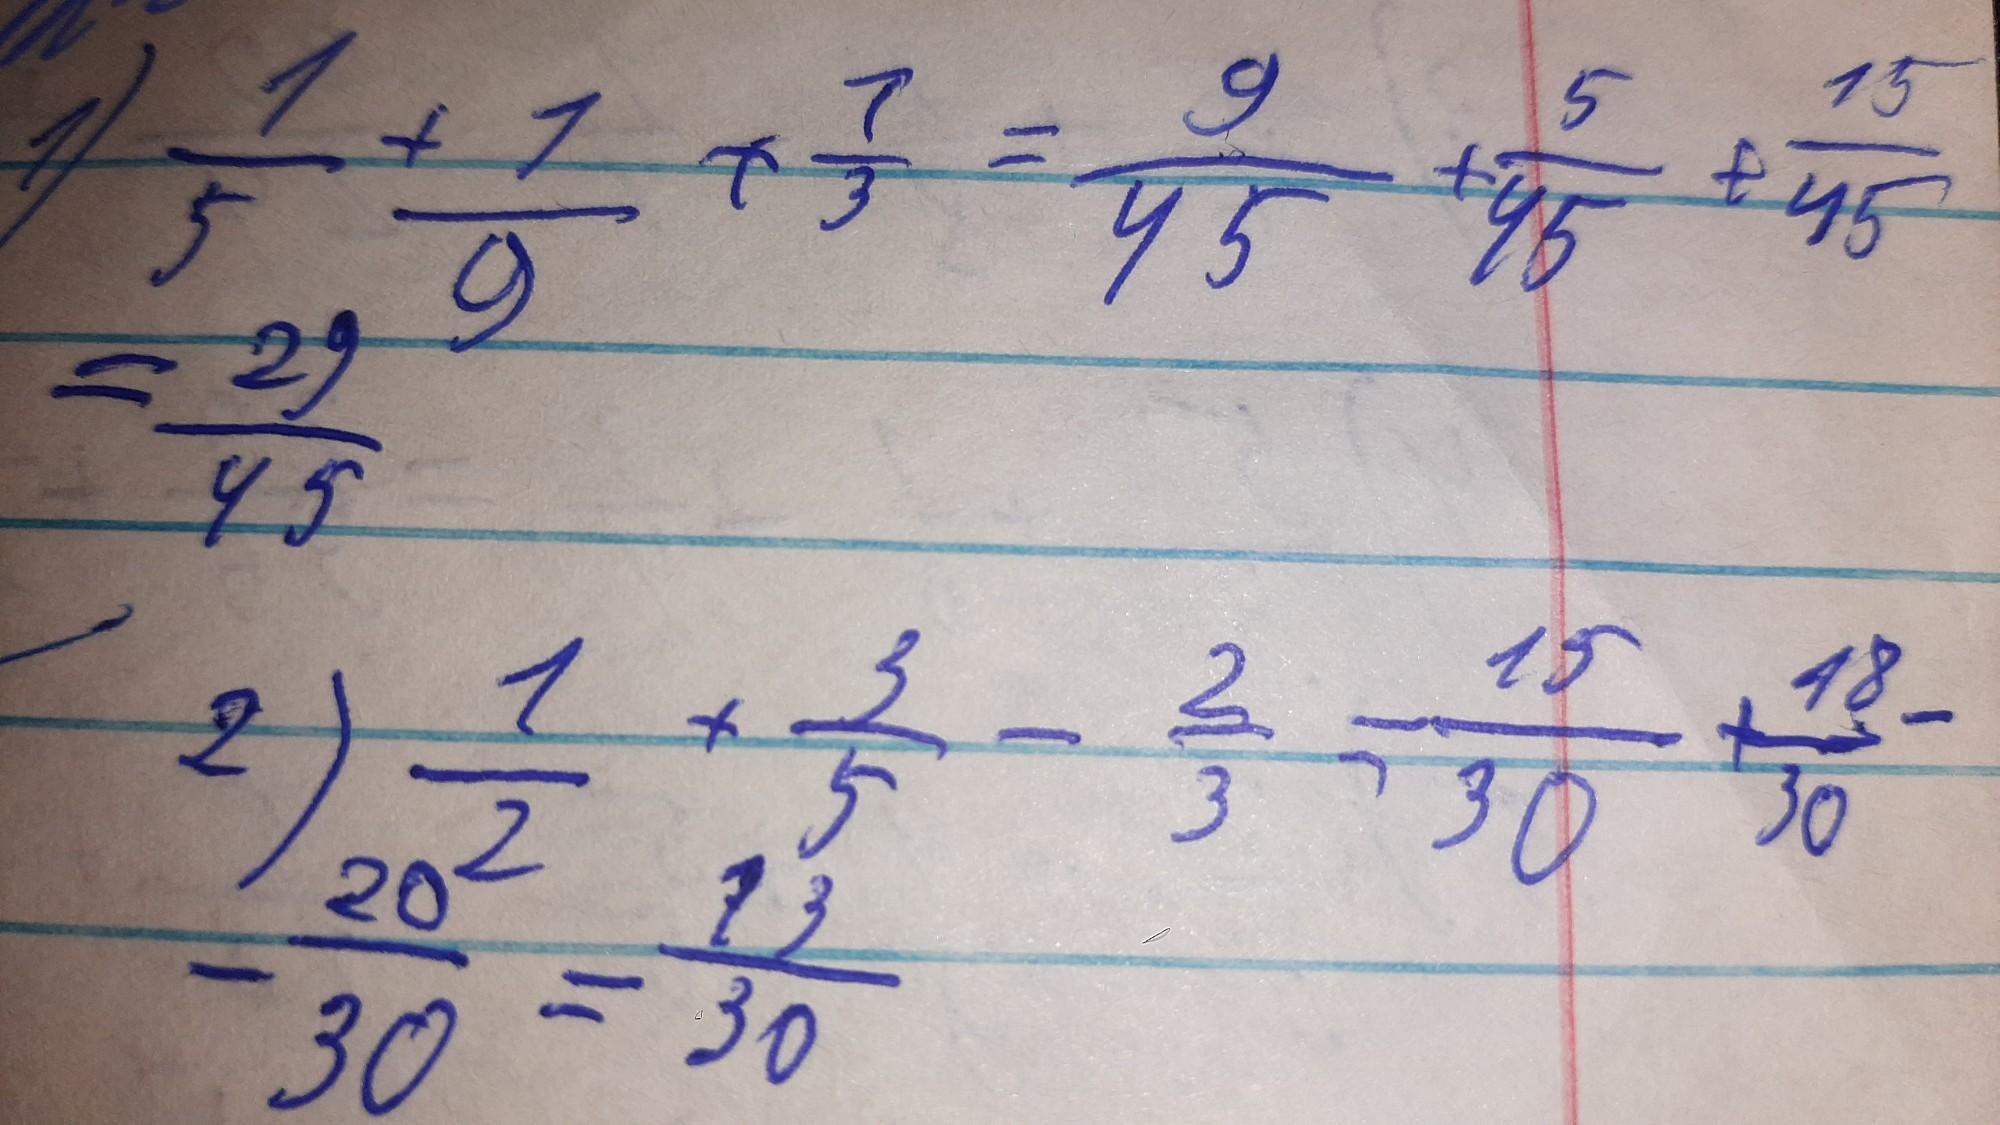 1) 1/5 + 1/9 + 1/3 = 9/45 + 5/45 + 15/45
= 29/45
2) 1/2 + 3/5 - 2/3 = 15/30 + 18/30 -
- 20/30 = 13/30